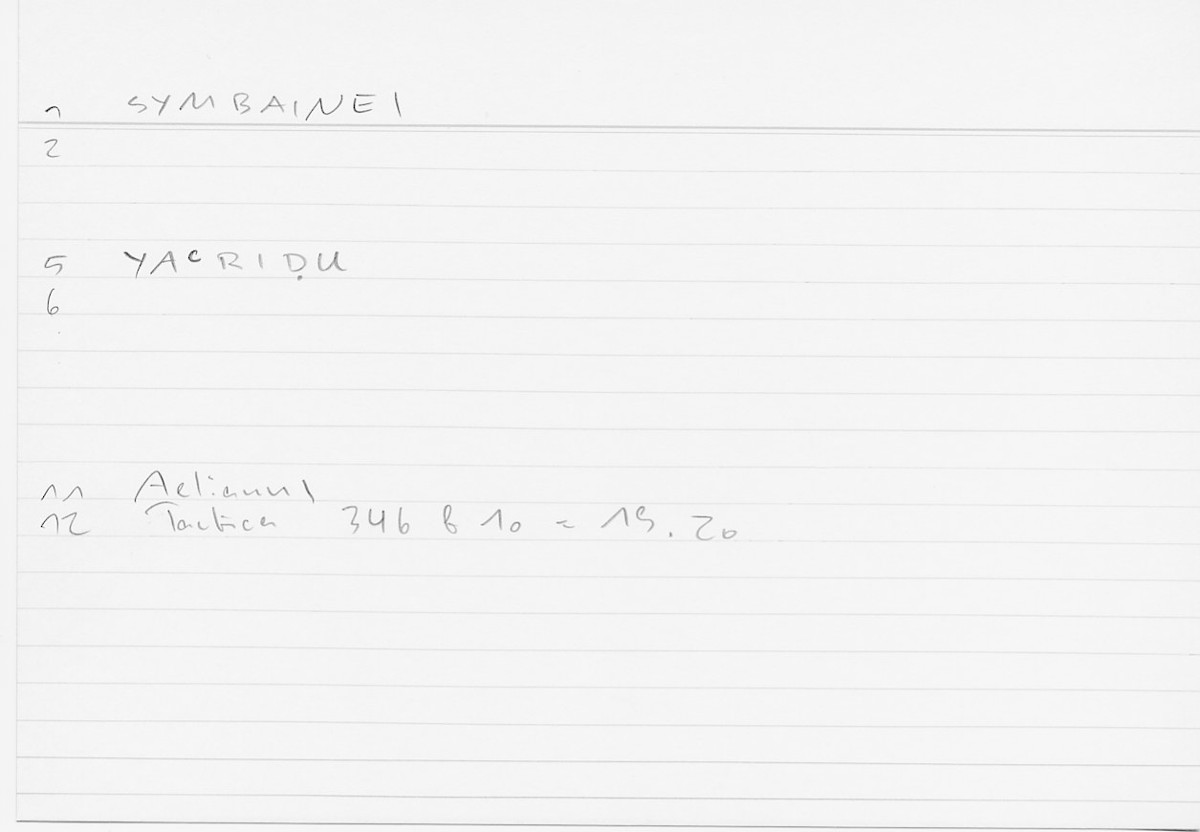 1 SYMBAINEI
2
5 YAᶜRIḌU
6
11 Aelianus
12 Tactica 346 b 10 = 19.20